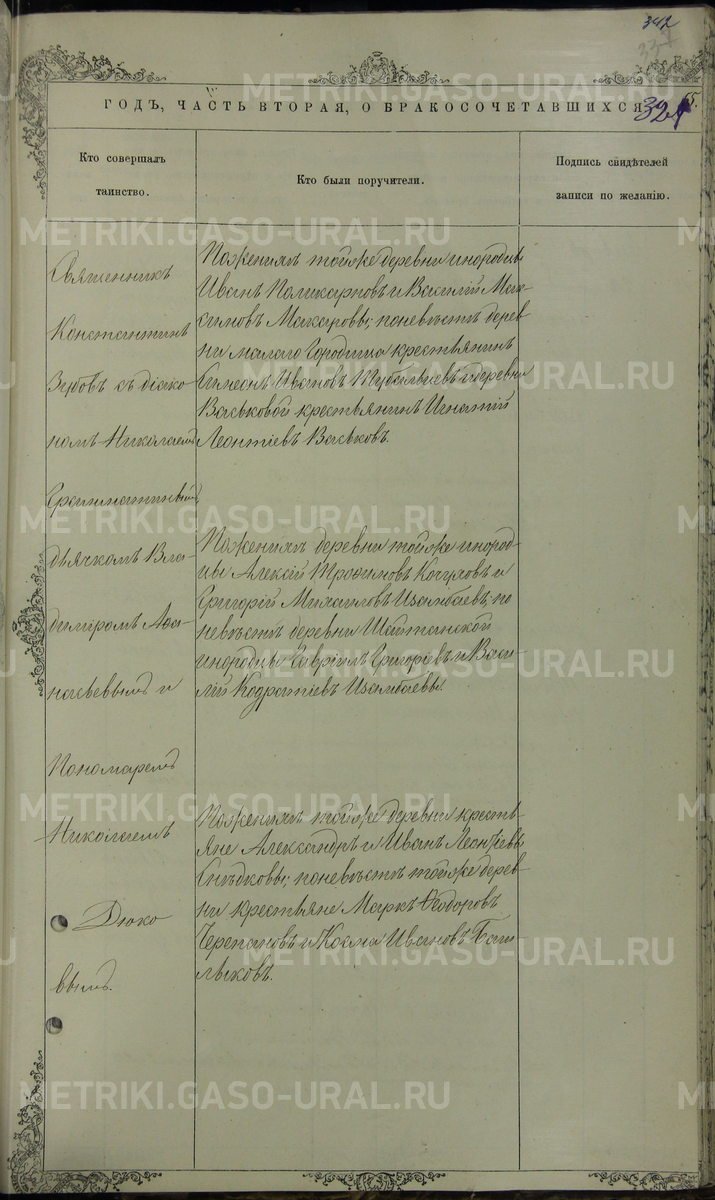 342
337
ГОДЪ, ЧАСТЬ ВТОРАЯ, О БРАКОСОЧЕТАВШИХСЯ.
65.
321
Кто совершалъ
таинство.
Кто были поручители.
Подпись свидѣтелей
записи по желанію.
Священникъ
Константинъ
Зубовъ съ діако
номъ Николаемъ
дьячкомъ Вла-
димиромъ Аѳа
насьевымъ и
Пономаремъ
Николаемъ
Дюко
вымъ.
Поженихѣ тойже деревни инородцы
Иванъ Поликарповъ и Василій Мак-
симовъ Макаровы; поневѣстѣ дерев
ни малаго Городища крестьянинъ
Симеонъ Ивановъ и деревни
Васьковой крестьянинъ Игнатій
Леонтіевъ Васьковъ.
Поженихѣ деревни тойже инород-
цы Алексій Трофимовъ и
Григорій Михаиловъ Изамбаевъ; по
невѣстѣ деревни Шайтанской
инородцы Гавріилъ Григоріевъ и Васи-
лій Кодратіевъ Изамбаевы.
Поженихѣ тойже деревни кресть-
яне Александръ и Иванъ Леонтіевы
поневѣстѣ тойже дерев
ни крестьяне Маркъ Ѳеодоровъ
Черепановъ и Косма Ивановъ Баш-
лыковъ.
METRIKI.GASO-URAL.RU